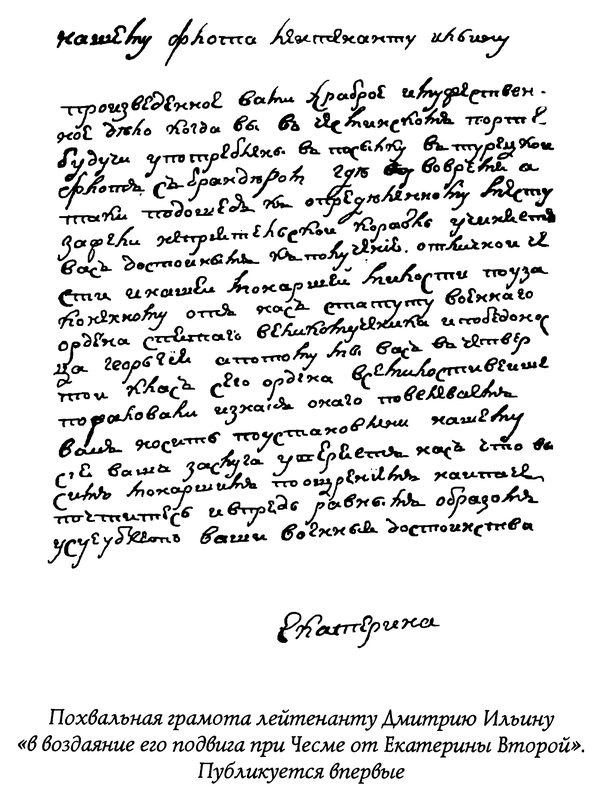 нашему флота лейтенанту ильину
произведенное вами храброе имужествен-
ное дѣло когда вы въ чесминскомъ портѣ
будучи употреблены въ посылку въ турецкой
флотъ съ брандеромъ гдѣ вовремя а
таки подошедъ къ определенному месту
зажечи неприятельской корабль учинить
васъ достойнымъ къ получению отличной че
сти инашей монаршей милости поуза
коненному отъ насъ статуту военнаго
ордена святаго великомученика ипобедонос
ца георгия апотому мы васъ въ четвер
той класъ сего ордена всемилостивейше
пожаловали изнакъ онаго повелеваемъ
вамъ носить поустановлении нашему
сия ваша заслуга уверяетъ насъ что вы
симъ монаршимъ поощрениемъ наипаче
почтитесь ивпредь равнымъ образомъ
усугублять ваши военныя достоинства
Екатерина
Похвальная грамота лейтенанту Дмитрию Ильину
«в воздаяние его подвига при Чесме от Екатерины Второй».
Публикуется впервые